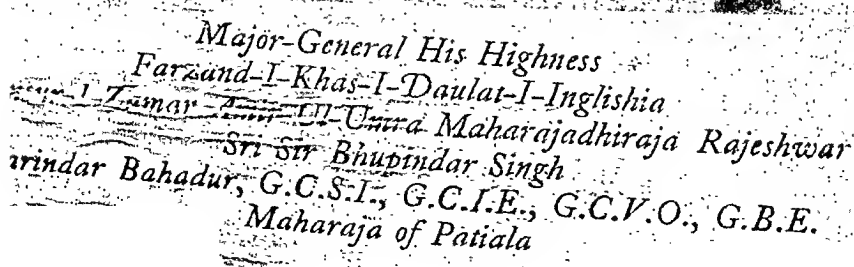 Major-General His Highness
Farzand-I-Khas-I-Daulat-I-Inglishia
Zamar Amir-Ul-Umra Maharajadhiraja Rajeshwar
Sri Sir Bhupindar Singh
arindar Bahadur, G.C.S.I., G.C.I.E., G.C.V.O., G.B.E.
Maharaja of Patiala